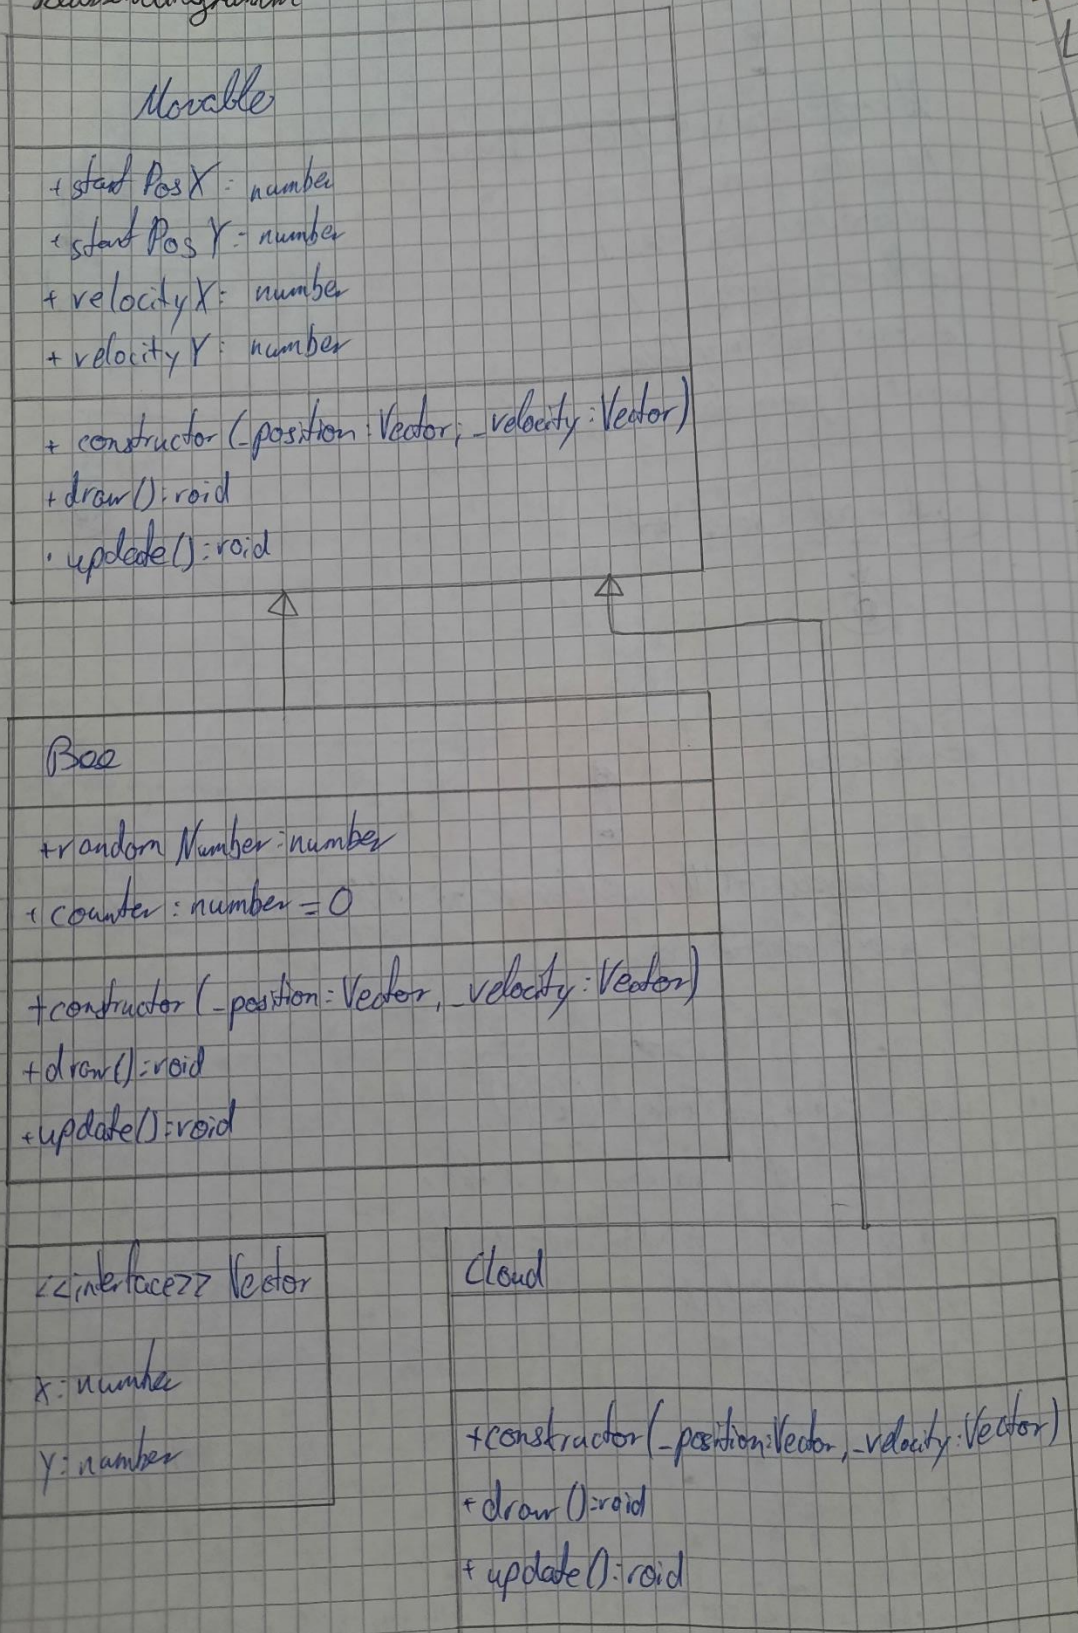 Klassendiagramm
Movable
+ startPosX: number
+ startPosY: number
+ velocityX: number
+ velocityY: number
+ constructor(_position:Vector, _velocity:Vector)
+ draw():void
· update():void
Bee
+randomNumber:number
+ counter:number=0
+constructor(_position:Vector, _velocity:Vector)
+draw():void
+update():void
<<interface>> Vector
X:number
Y:number
Cloud
+constructor(_position:Vector,_velocity:Vector)
+ draw():void
+ update():void